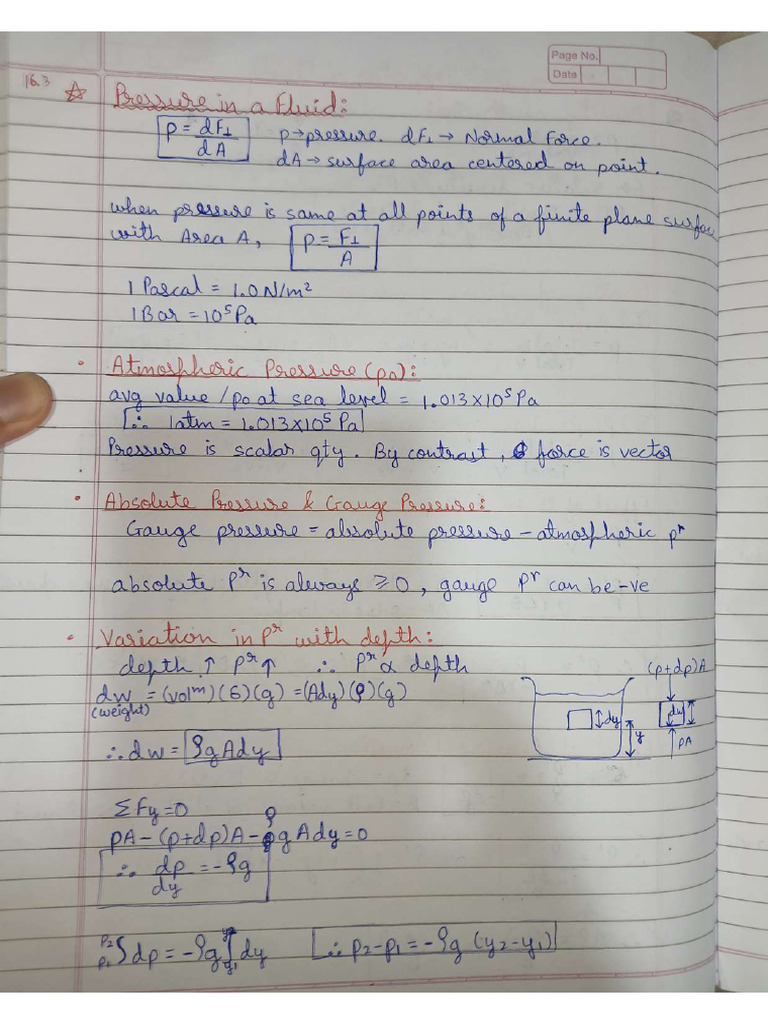 Page No.
Date
16.3
Pressure in a Fluid:
p = dF⊥/dA p→pressure. dF⊥→ Normal Force.
dA→surface area centered on point.
when pressure is same at all points of a finite plane surface
with Area A, p = F⊥/A
1 Pascal = 1.0 N/m²
1 Bar = 10⁵ Pa
• Atmospheric Pressure (pa):
avg value / p0 at sea level = 1.013×10⁵ Pa
∴ 1atm = 1.013×10⁵ Pa
Pressure is scalar qty. By contrast, force is vector
• Absolute Pressure & Gauge Pressure:
Gauge pressure = absolute pressure – atmospheric pʳ
absolute Pʳ is always ≥ 0, gauge Pʳ can be -ve
• Variation in Pʳ with depth:
depth ↑ Pʳ↑ ∴ Pʳ ∝ depth
dw = (volᵐ)(ϱ)(g) = (Ady)(ρ)(g)
(weight)
∴ dw = ρgAdy
(p+dp)A
dy
dw
y
pA
ΣFy = 0
pA – (p+dp)A – ρgAdy = 0
∴ dp/dy = -ρg
p₁∫p₂ dp = -ρg y₁∫y₂ dy ∴ p₂-p₁ = -ρg (y₂-y₁)